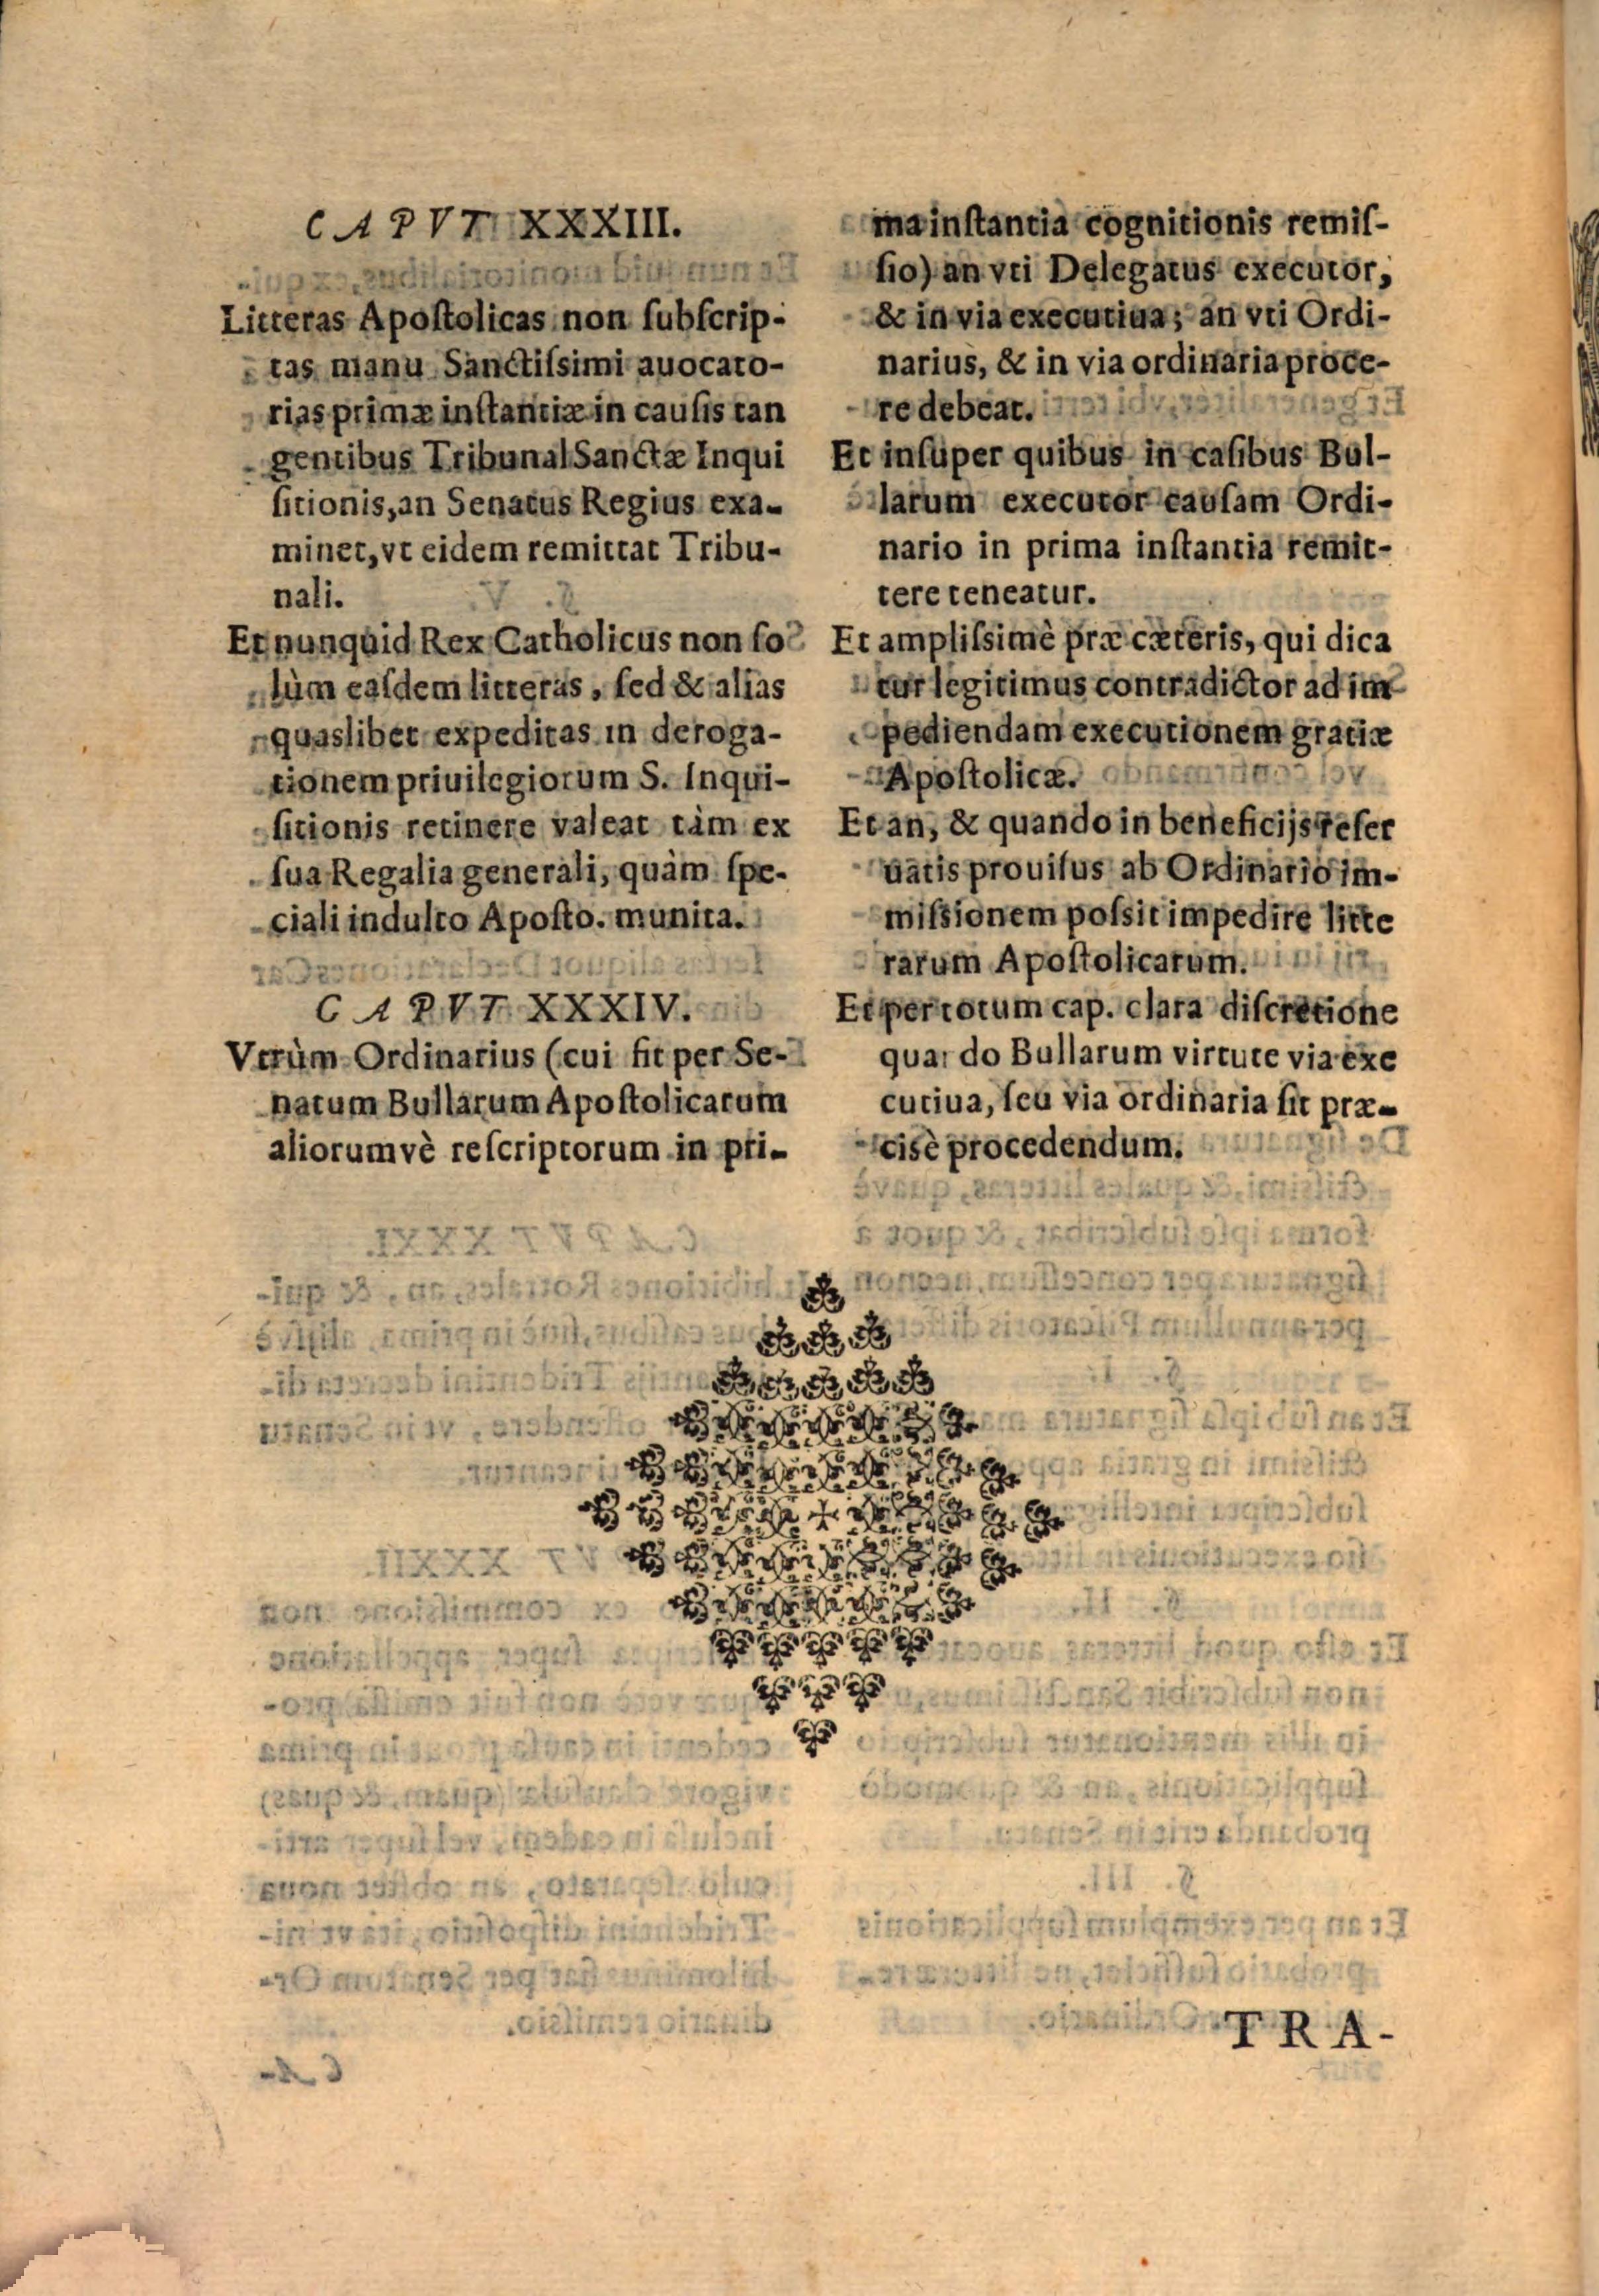 CAPVT XXXIII.
Litteras Apostolicas non subscrip-
tas manu Sanctissimi auocato-
rias primæ instantiæ in causis tan
gentibus Tribunal Sanctæ Inqui
sitionis, an Senatus Regius exa-
minet, vt eidem remittat Tribu-
nali.
Et nunquid Rex Catholicus non so
lùm easdem litteras, sed & alias
quaslibet expeditas in deroga-
tionem priuilegiorum S. Inqui-
sitionis retinere valeat tàm ex
sua Regalia generali, quàm spe-
ciali indulto Aposto. munita.
CAPVT XXXIV.
Vtrùm Ordinarius (cui fit per Se-
natum Bullarum Apostolicarum
aliorumvè rescriptorum in pri-
ma instantia cognitionis remis-
sio) an vti Delegatus executor,
& in via executiua; an vti Ordi-
narius, & in via ordinaria proce-
re debeat.
Et insuper quibus in casibus Bul-
larum executor causam Ordi-
nario in prima instantia remit-
tere teneatur.
Et amplissimè præ cæteris, qui dica
tur legitimus contradictor ad im
pediendam executionem gratiæ
Apostolicæ.
Et an, & quando in beneficijs reser
uatis prouisus ab Ordinario im-
missionem possit impedire litte
rarum Apostolicarum.
Et per totum cap. clara discretione
quando Bullarum virtute via exe
cutiua, seu via ordinaria sit præ-
cisè procedendum.
TRA-